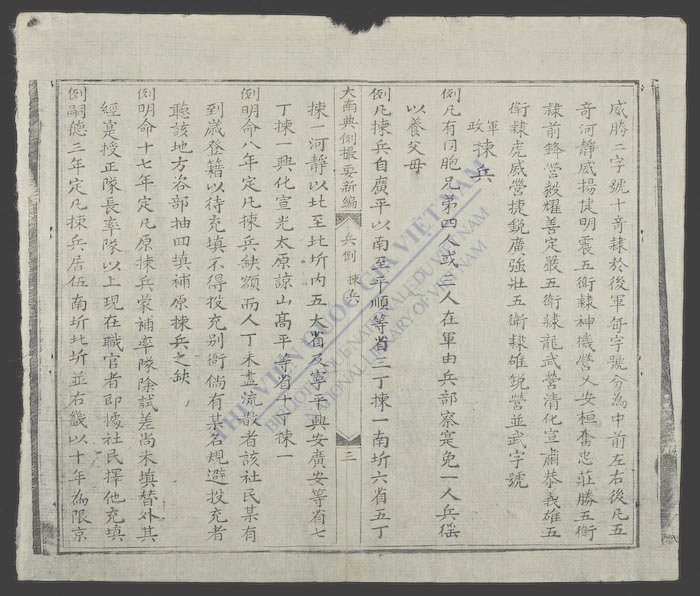 威勝二字號十奇隸於後軍每字號分為中前左右後凡五
奇河靜威揚健明震五衛隸神機營乂安桓奮忠莊勝五衛
隸前鋒營毅耀善定嚴五衛隸龍武營清化宣肅恭義雄五
衛隸虎威營捷銳廣強壯五衛隸雄銳營並武字號
軍政 揀兵
例凡有同胞兄弟四人或三人在軍由兵部察寔免一人兵徭
以養父母
例凡揀兵自廣平以南至平順等省三丁揀一南圻六省五丁
大南典例撮要新編 兵例 揀兵 三
揀一河靜以北至北圻内五大省及寧平興安廣安等省七
丁揀一興化宣光太原諒山高平等省十丁揀一
例明命八年定凡揀兵缺額而人丁未盡流散者該社民某有
到歲登籍以待充填不得投充别衙倘有某名規避投充者
聽該地方各部抽回填補原揀兵之缺
例明命十七年定凡原揀兵蒙補率隊除試差尚未填替外其
經寔授正隊長率隊以上現在職官者即據社民擇他充填
例嗣德三年定凡揀兵居伍南圻北圻並右畿以十年為限京
THƯ VIỆN QUỐC GIA VIỆT NAM
BIBLIOTHEQUE NATIONALE DU VIETNAM
NATIONAL LIBRARY OF VIETNAM